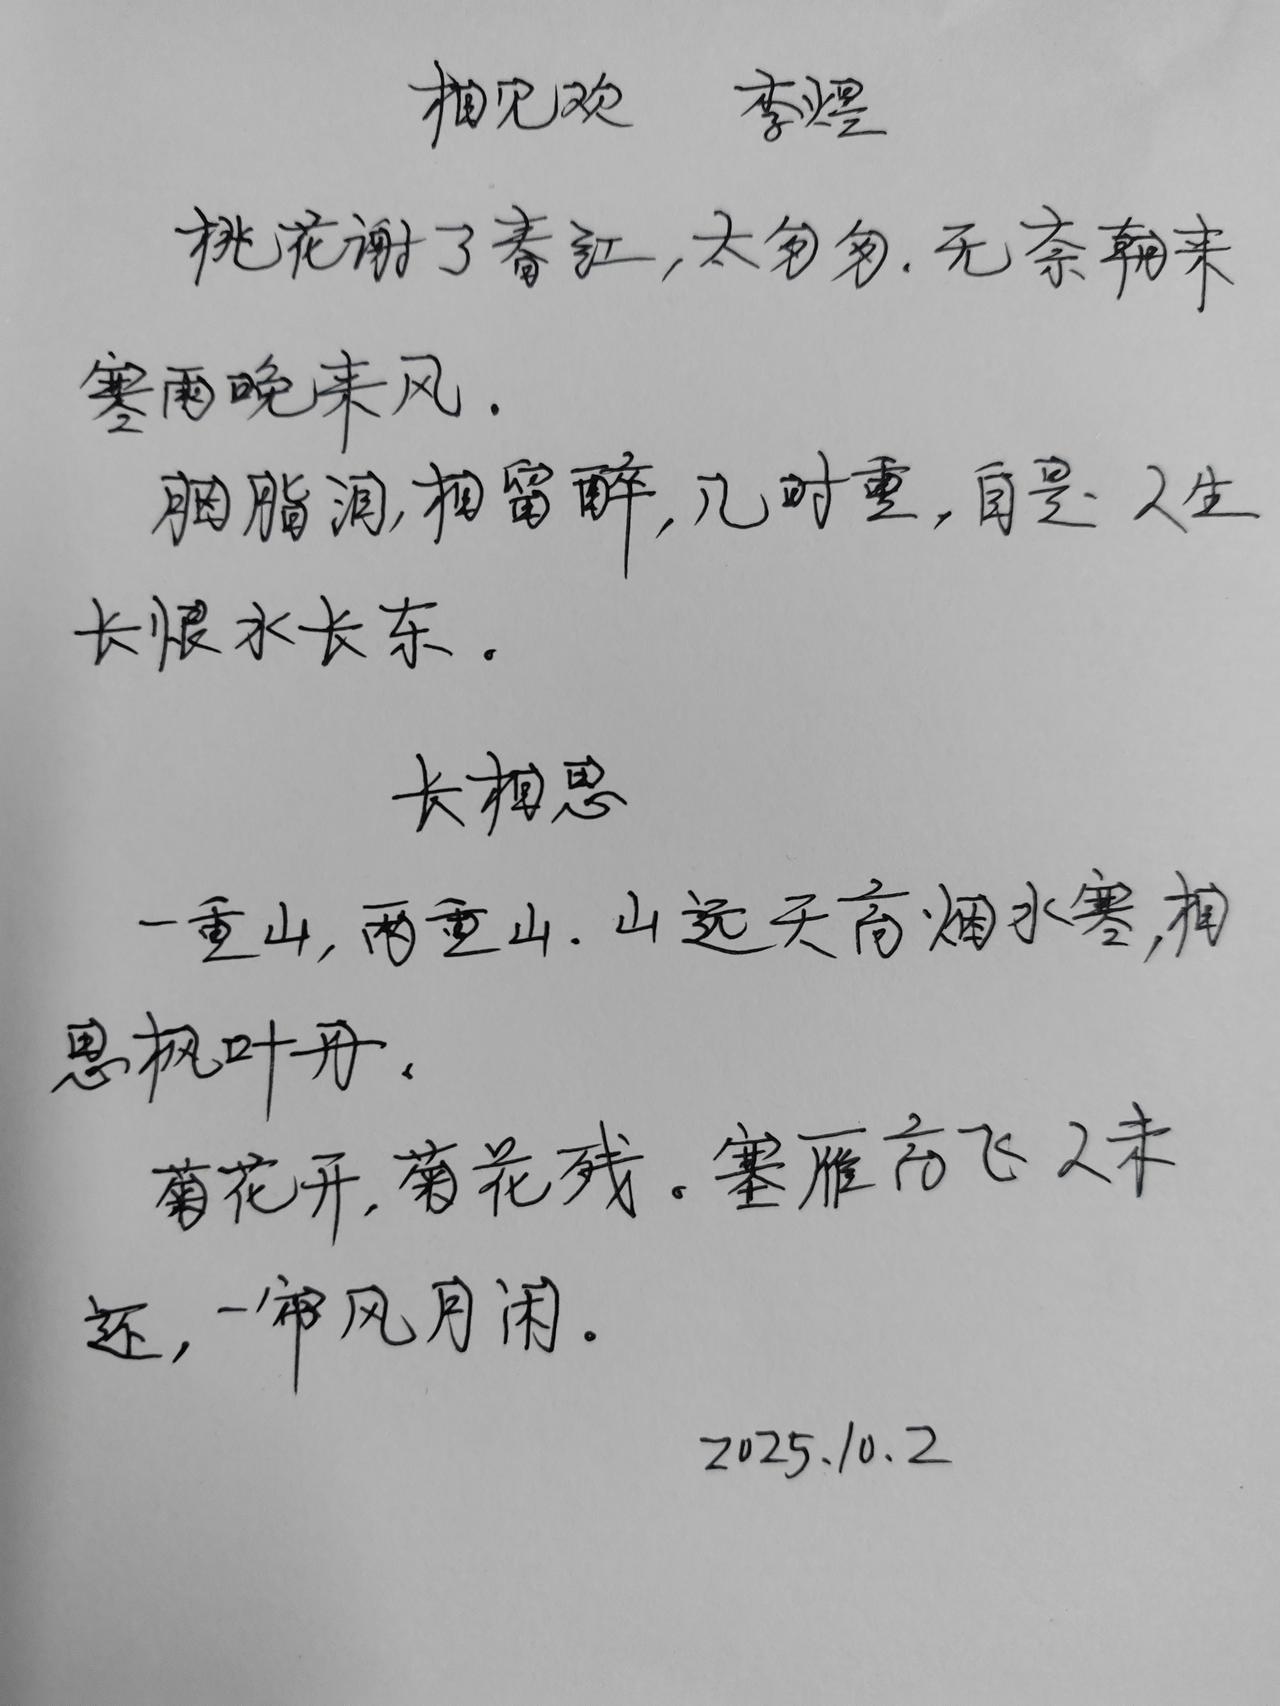 相见欢 李煜
桃花谢了春红,太匆匆.无奈朝来
寒雨晚来风.
胭脂泪,相留醉,几时重,自是人生
长恨水长东。
长相思
一重山,两重山.山远天高烟水寒,相
思枫叶丹.
菊花开,菊花残。塞雁高飞人未
还,一帘风月闲.
2025.10.2